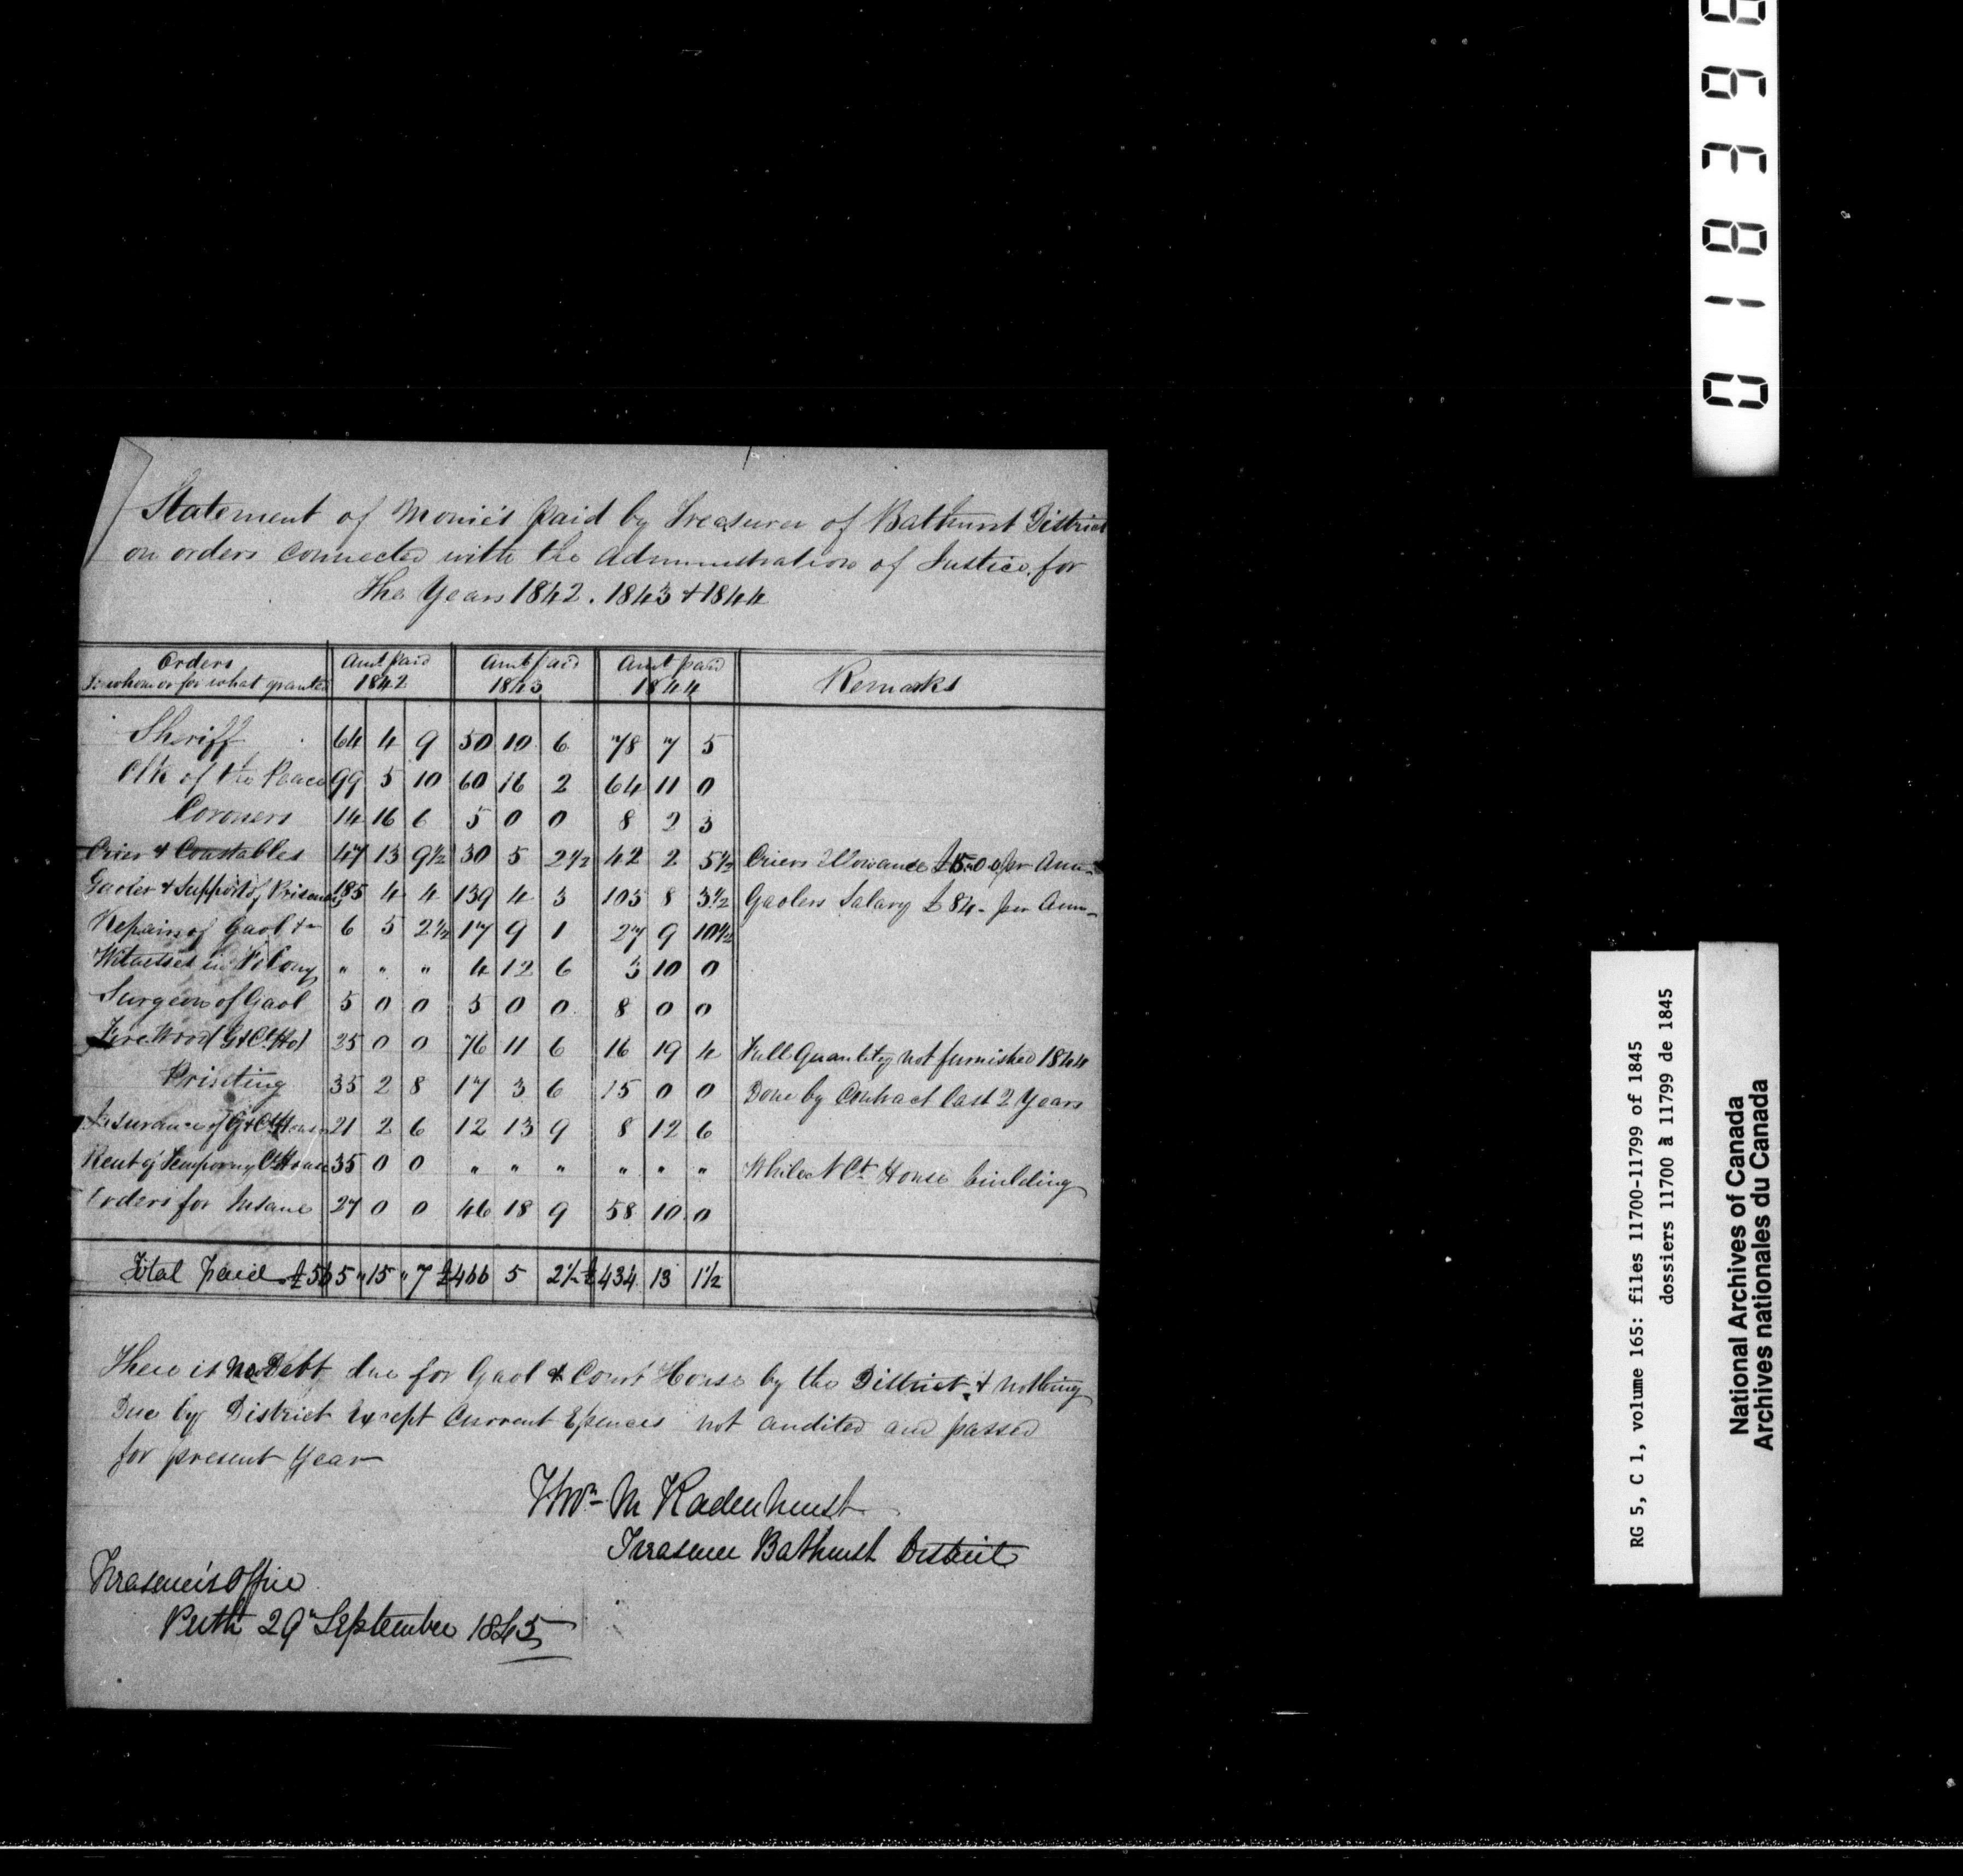 Statement of Monies paid by Treasurer of Bathurst District
on orders Connected with the Administration of Justice for
The Years 1842. 1843 + 1844
Orders To whom or for what granted | Amt paid 1842 | Amt paid 1843 | Amt paid 1844 | Remarks
Sheriff 64 4 9 50 10 6 78 7 5
Clk of the Peace 99 5 10 60 16 2 64 11 0
Coroners 14 16 6 5 0 0 8 2 3
Crier & Constables 47 13 9½ 30 5 2½ 42 2 5½ Criers Allowance £15.0 0 per Ann
Gaoler & Support of Prisoners 185 4 4 139 4 3 103 8 3½ Gaolers Salary £84- per Ann
Repairs of Gaol 6 5 2½ 17 9 1 27 9 10½
Witnesses in Felony " " " 4 12 6 3 10 0
Surgeon of Gaol 5 0 0 5 0 0 8 0 0
Fire Wood G & Ct Ho 25 0 0 76 11 6 16 19 4 Full Quantity not furnished 1844
Printing 35 2 8 17 3 6 15 0 0 Done by Contract last 2 Years
Insurance of G & Ct House 21 2 6 12 13 9 8 12 6
Rent of Temporary Ct House 35 0 0 " " " " " " While N Ct House building
Orders for Insane 27 0 0 46 18 9 58 10 0
Total paid £565 " 15 " 7 £466 5 2½ £434 13 1½
There is no Debt due for Gaol & Court House by the District & nothing
Due by District Except Current Epences not audited and passed
for present Year
Thos M Radenhurst
Treasurer Bathurst District
Treasurer's Office
Perth 29th September 1845
RG 5, C 1, volume 165: files 11700-11799 of 1845
dossiers 11700 à 11799 de 1845
National Archives of Canada
Archives nationales du Canada